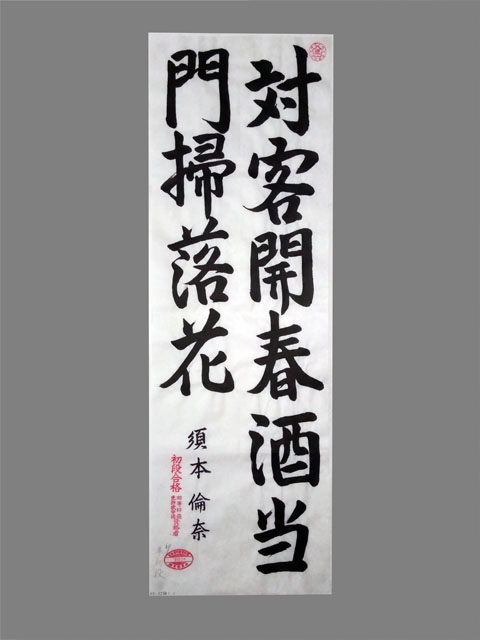 対客開春酒当
門掃落花
須本倫奈
初段合格